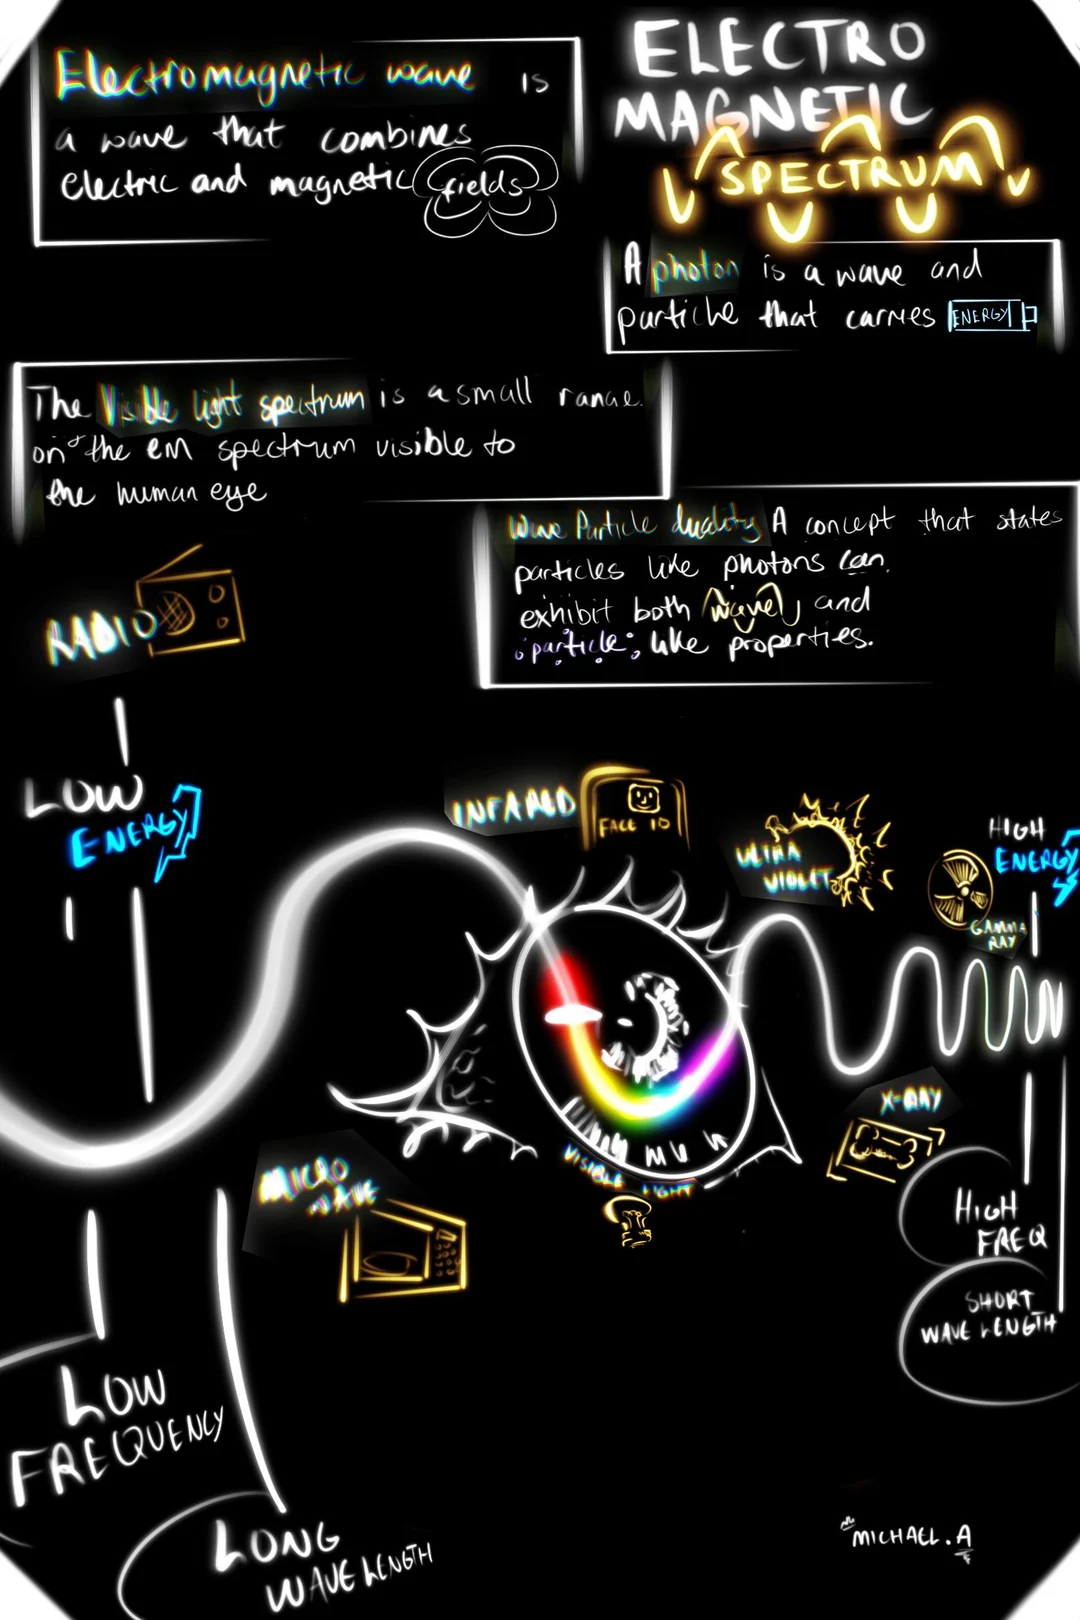 Electromagnetic wave is
a wave that combines
electric and magnetic fields
ELECTRO
MAGNETIC
SPECTRUM
A photon is a wave and
particle that carries ENERGY
The Visible light spectrum is a small range
on the em spectrum visible to
the human eye
Wave Particle duality A concept that states
particles like photons can
exhibit both wave and
particle like properties.
RADIO
LOW
ENERGY
INFARED
FACE ID
ULTRA
VIOLET
HIGH
ENERGY
GAMMA
RAY
X-RAY
MICRO
WAVE
VISIBLE LIGHT
HIGH
FREQ
SHORT
WAVE LENGTH
LOW
FREQUENCY
LONG
WAVE LENGTH
MICHAEL.A